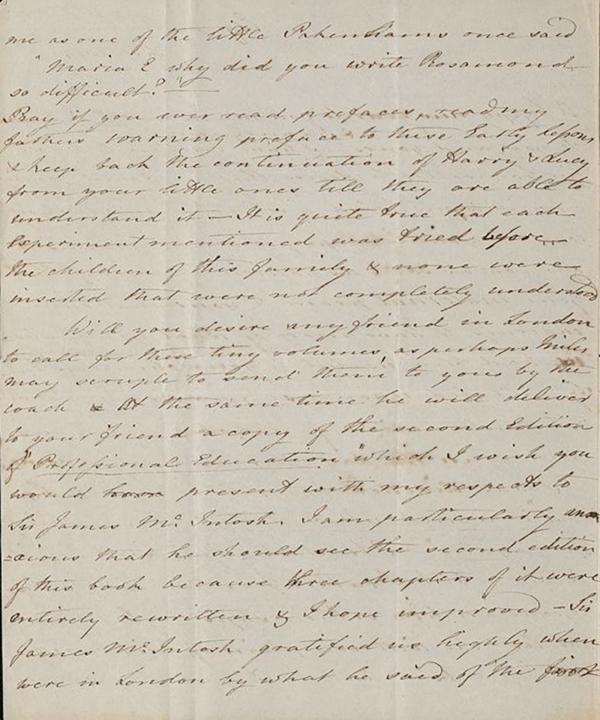 me as one of the little Pakenhams once said
"Maria E why did you write Rosamond
so difficult?"
Pray if you ever read prefaces, read my
fathers warning preface to these Early lessons
& keep back the continuation of Harry & Lucy
from your little ones till they are able to
understand it – It is quite true that each
experiment mentioned was tried before
the children of this family & none were
inserted that were not completely understood
Will you desire any friend in London
to call for these tiny volumes, as perhaps Miles
may scruple to send them to you by the
coach & At the same time he will deliver
to your friend a copy of the second Edition
of "Professional Education" which I wish you
would present with my respects to
Sir James Mc Intosh. I am particularly an
=xious that he should see the second edition
of this book because three chapters of it were
entirely rewritten & I hope improved – Sir
James Mc Intosh gratified us highly when
were in London by what he said of the first